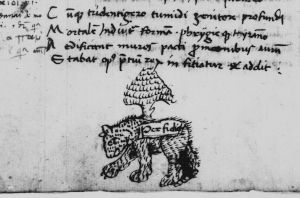 C ūq; tridentigero tumidi genitore profundi
M ortalē Induit᷑ formā phrygieq; tyrāno
A edificant muros pacti p menibus aurū
S tabat op⁹ p̄tiū rex infitiatur & addit :
Perfidie